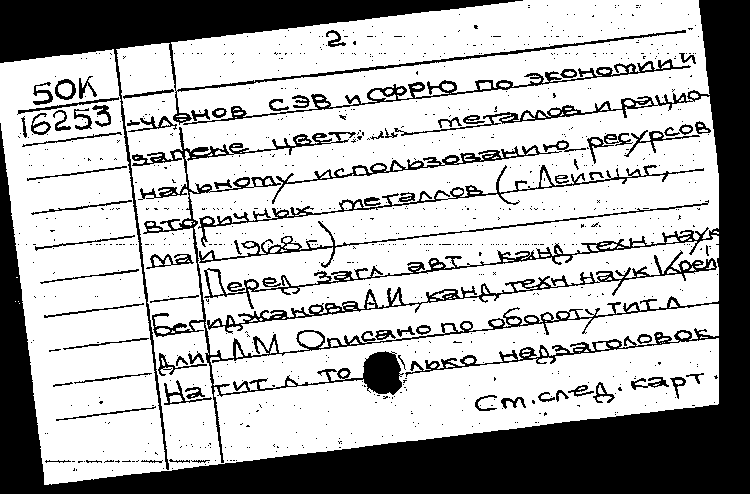 2.
50К
16253
-членов СЭВ и СФРЮ по экономии и
замене цветных металлов и рацио-
нальному использованию ресурсов
вторичных металлов (г. Лейпциг,
май 1968г.)
Перед загл. авт.: канд. техн. наук
Бегиджанова А.И., канд. техн. наук Крейн
длин Л.М. Описано по обороту тит. л.
На тит. л. только надзаголовок
См. след. карт.